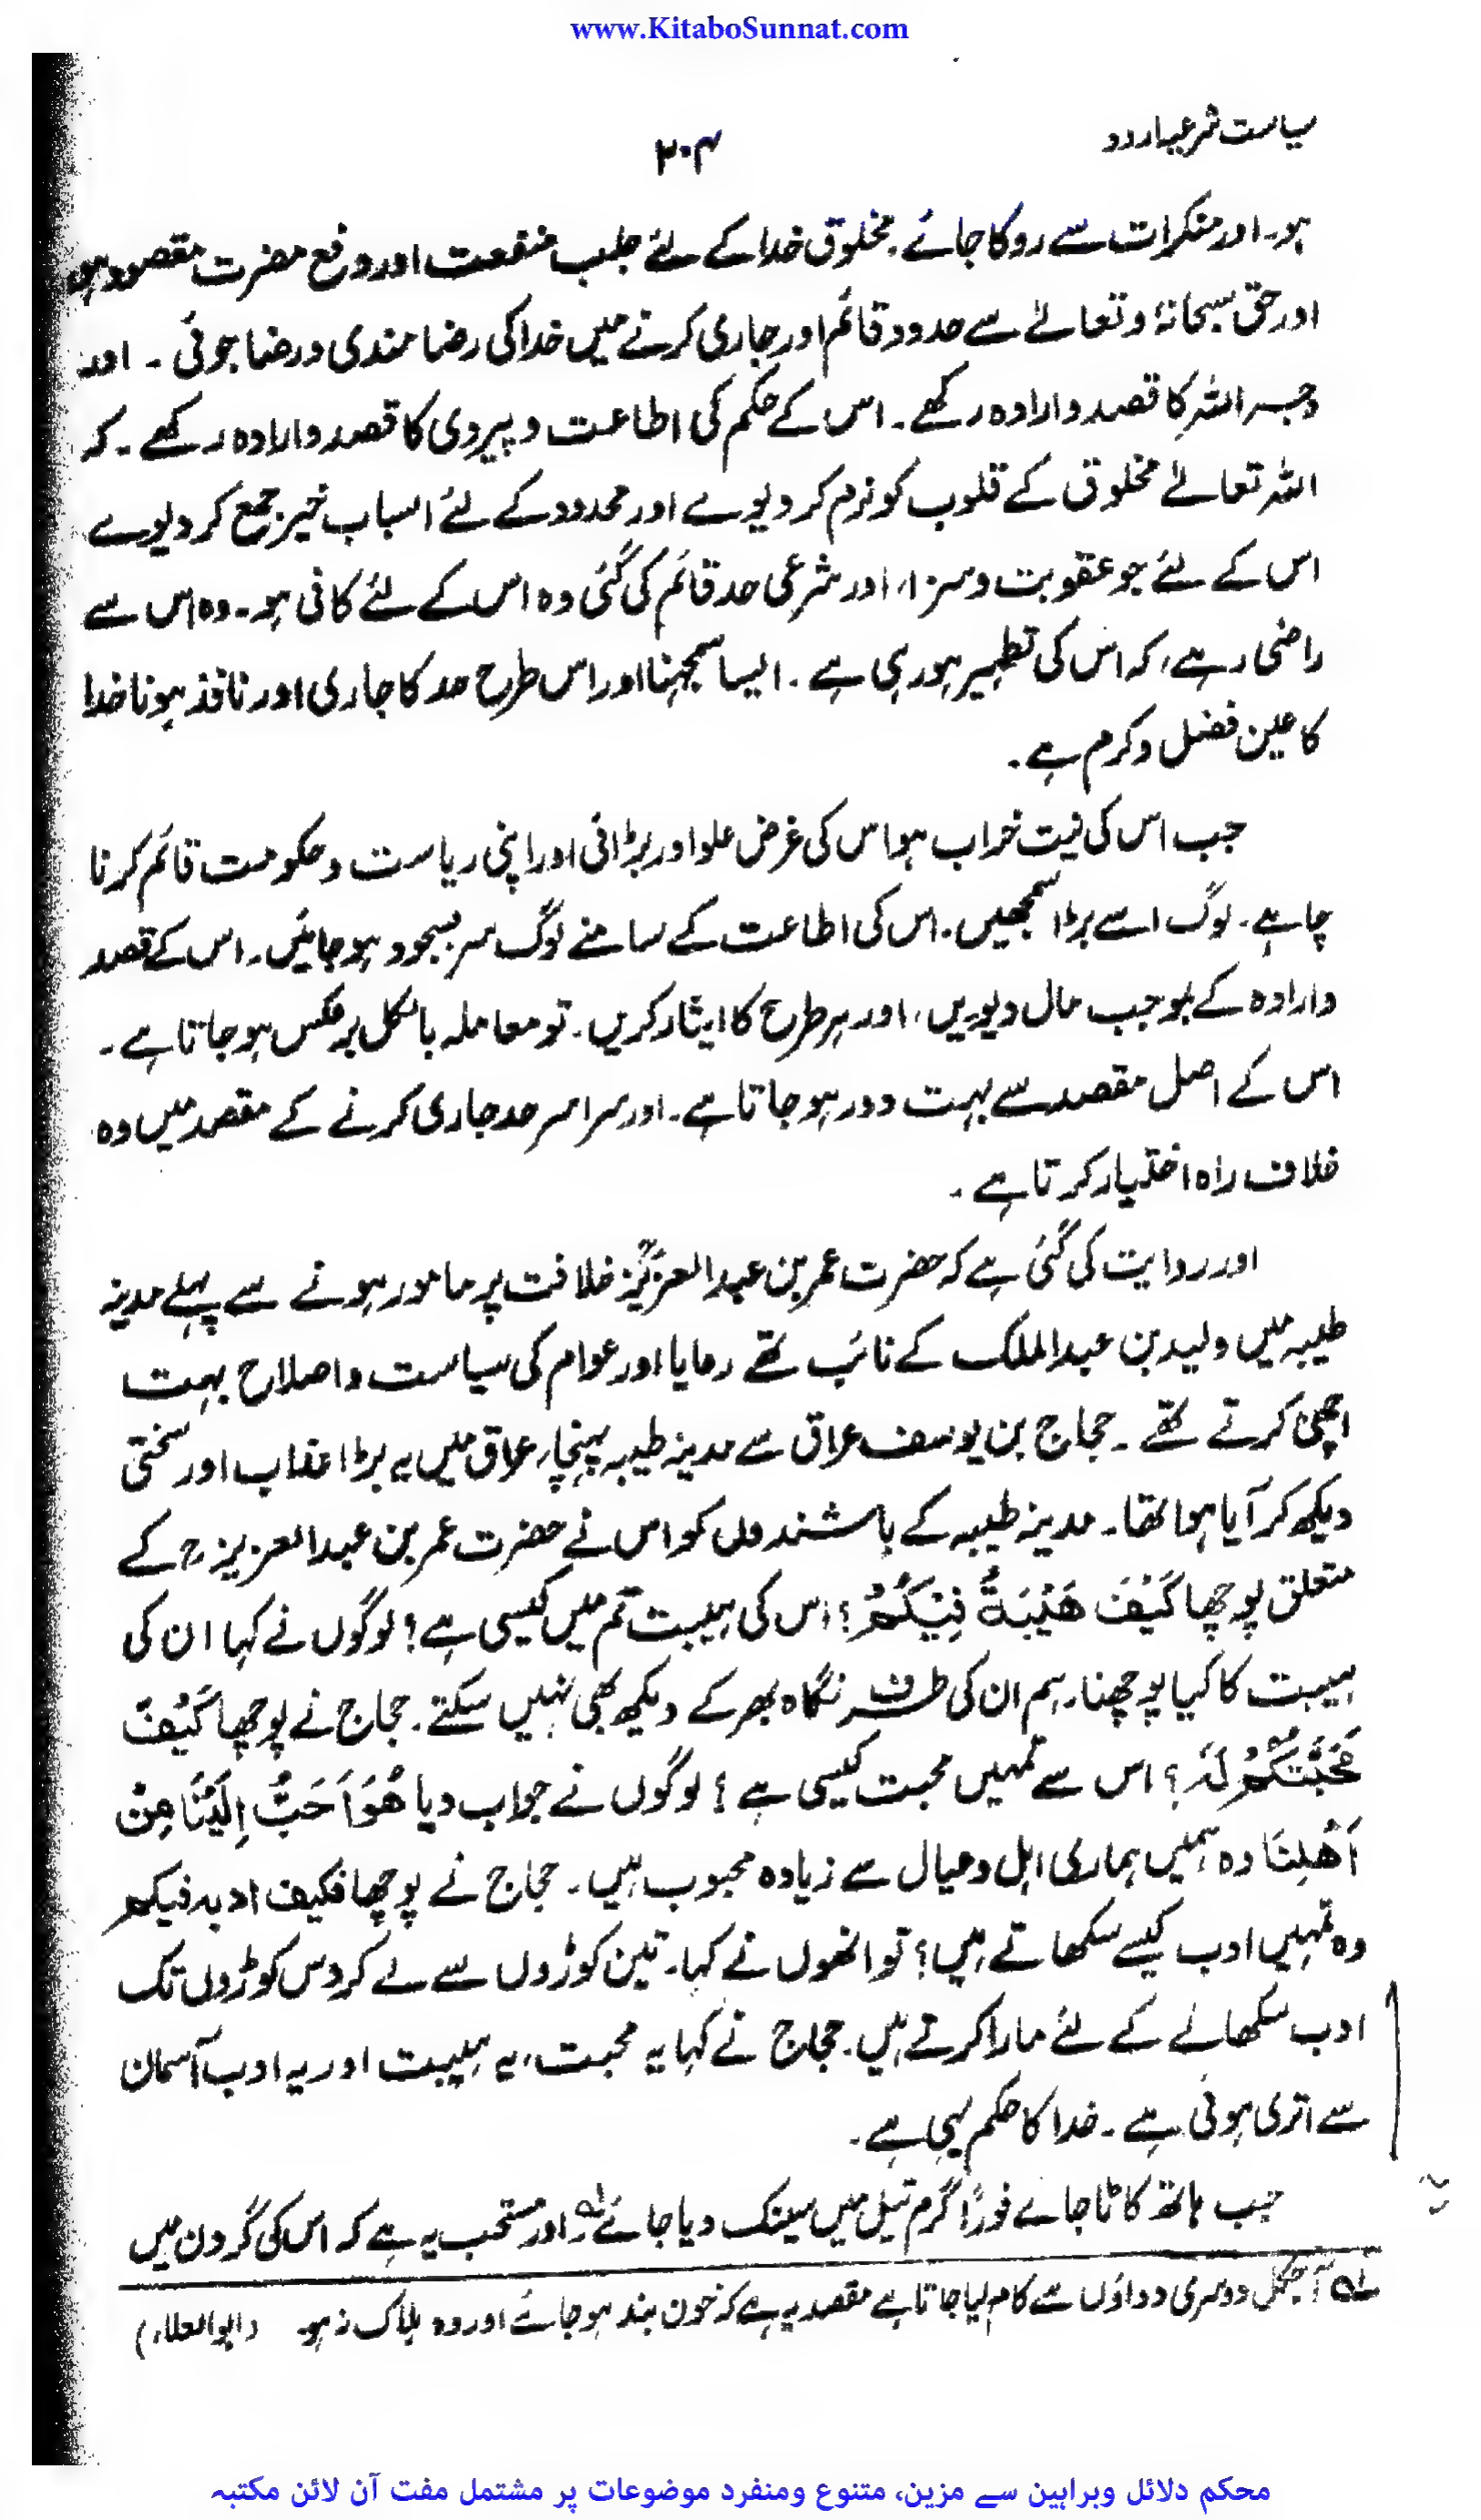 www.KitaboSunnat.com
سیاست شرعیہ اردو
۲۰۴
ہو۔ اور منکرات سے روکا جائے۔ مخلوق خدا کے لئے جلب منفعت اور دفع مضرت مقصود ہو۔
اور حق سبحانہٗ و تعالےٰ سے حدود قائم اور جاری کرنے میں خدا کی رضامندی و رضا جوئی ۔ اور
وجہ اللہِ کا قصد و ارادہ رکھے۔ اس کے حکم کی اطاعت و پیروی کا قصد و ارادہ رکھے ۔ کہ
اللہ تعالےٰ مخلوق کے قلوب کو نرم کر دیوے اور محدود کے لئے اسباب خیر جمع کر دیوے
اس کے لئے جو عقوبت و سزا، اور شرعی حد قائم کی گئی وہ اس کے لئے کافی ہو۔ وہ اس سے
راضی رہے، کہ اس کی تطہیر ہو رہی ہے ۔ ایسا سمجہنا اور اس طرح حد کا جاری اور نافذ ہونا خدا
کا عین فضل و کرم ہے ۔
جب اس کی نیت خراب ہو اس کی غرض علو اور بڑائی اور اپنی ریاست و حکومت قائم کرنا
چاہے۔ لوگ اسے بڑا سمجھیں۔ اس کی اطاعت کے سامنے لوگ سر بسجود ہو جائیں۔ اس کے قصد
و ارادہ کے بموجب مال دیویں، اور ہر طرح کا ایثار کریں۔ تو معاملہ بالکل برعکس ہو جاتا ہے ۔
اس کے اصل مقصد سے بہت دور ہو جاتا ہے۔ اور سراسر حد جاری کرنے کے مقصد میں وہ
خلاف راہ اختیار کرتا ہے ۔
اور روایت کی گئی ہے کہ حضرت عمر بن عبدالعزیزؒ خلافت پر مامور ہونے سے پہلے مدینہ
طیبہ میں ولید بن عبدالملک کے نائب تھے رعایا اور عوام کی سیاست و اصلاح بہت
اچھی کرتے تھے ۔ حجاج بن یوسف عراق سے مدینہ طیبہ پہنچا، عراق میں یہ بڑا عذاب اور سختی
دیکھ کر آیا ہوا تھا۔ مدینہ طیبہ کے باشندوں کو اس نے حضرت عمر بن عبدالعزیز رح کے
متعلق پوچھا كَيْفَ هَيْبَةُ فِيْكُمْ؟ اس کی ہیبت تم میں کیسی ہے؟ لوگوں نے کہا ان کی
ہیبت کا کیا پوچھنا۔ ہم ان کی طرف نگاہ بھر کے دیکھ بھی نہیں سکتے۔ حجاج نے پوچھا كَيْفَ
مَحَبَّتُكُمْ لَهٗ؟ اس سے تمہیں محبت کیسی ہے؟ لوگوں نے جواب دیا هُوَ اَحَبُّ اِلَيْنَا مِنْ
اَهْلِنَا وہ ہمیں ہماری اہل و عیال سے زیادہ محبوب ہیں۔ حجاج نے پوچھا فکیف ادبہ فیکم
وہ تمہیں ادب کیسے سکھاتے ہیں؟ تو انھوں نے کہا۔ تین کوڑوں سے لے کر دس کوڑوں تک
ادب سکھانے کے لئے مارا کرتے ہیں۔ حجاج نے کہا یہ محبت، یہ ہیبت اور یہ ادب آسمان
سے اتری ہوئی ہے ۔ خدا کا حکم یہی ہے ۔
جب ہاتھ کاٹا جاے فوراً گرم تیل میں سینک دیا جائے لہ اور مستحب یہ ہے کہ اس کی گردن میں
لہ آجکل دوسری دواؤں سے کام لیا جاتا ہے مقصد یہ ہے کہ خون بند ہو جائے اور وہ ہلاک نہ ہو۔ (ابوالعلاء)
محکم دلائل وبراہین سے مزین، متنوع ومنفرد موضوعات پر مشتمل مفت آن لائن مکتبہ